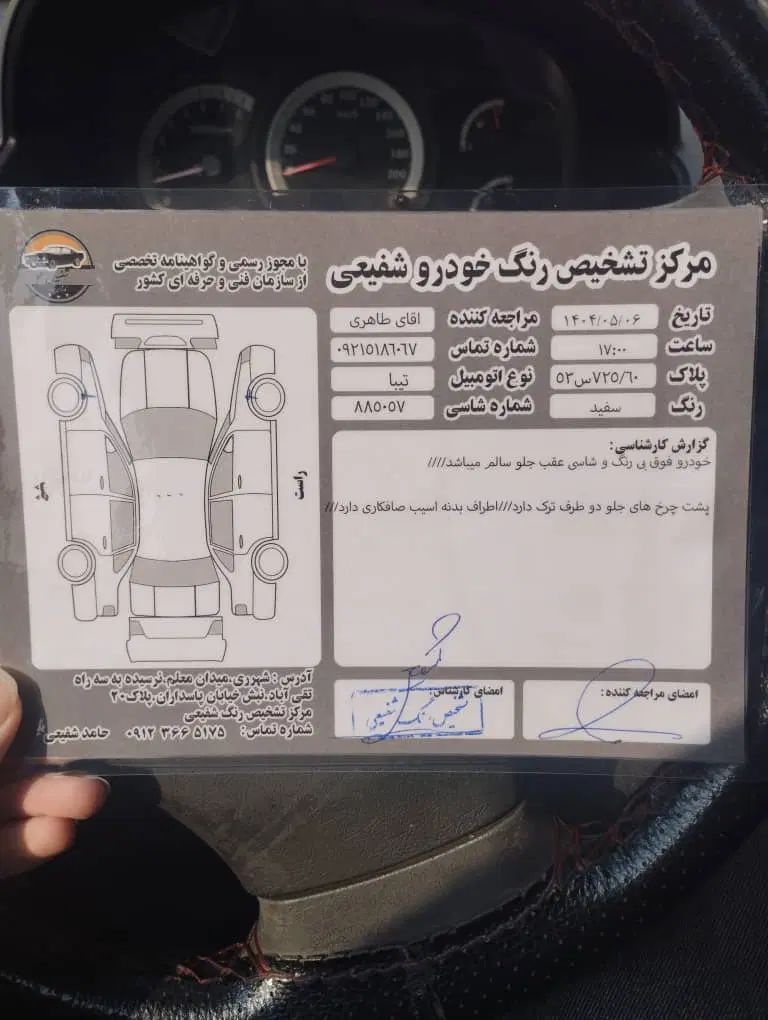 مرکز تشخیص رنگ خودرو شفیعی
با مجوز رسمی و گواهینامه تخصصی
از سازمان فنی و حرفه ای کشور
تاریخ ۱۴۰۴/۰۵/۰۶ مراجعه کننده اقای طاهری
ساعت ۱۷:۰۰ شماره تماس ۰۹۲۱۵۱۸۶۰۶۷
پلاک ۷۲۵/۶۰س۵۳ نوع اتومبیل تیبا
رنگ سفید شماره شاسی ۸۸۵۰۵۷
گزارش کارشناسی:
خودرو فوق بی رنگ و شاسی عقب جلو سالم میباشد////
پشت چرخ های جلو دو طرف ترک دارد///اطراف بدنه اسیب صافکاری دارد///
راست
امضای مراجعه کننده:
امضای کارشناس:
تشخیص رنگ شفیعی
آدرس : شهرری.میدان معلم.نرسیده به سه راه
تقی آباد.نبش خیابان پاسداران.پلاک۲۰
مرکز تشخیص رنگ شفیعی
شماره تماس: ۰۹۱۲ ۳۶۶ ۵۱۷۵ حامد شفیعی
120
200